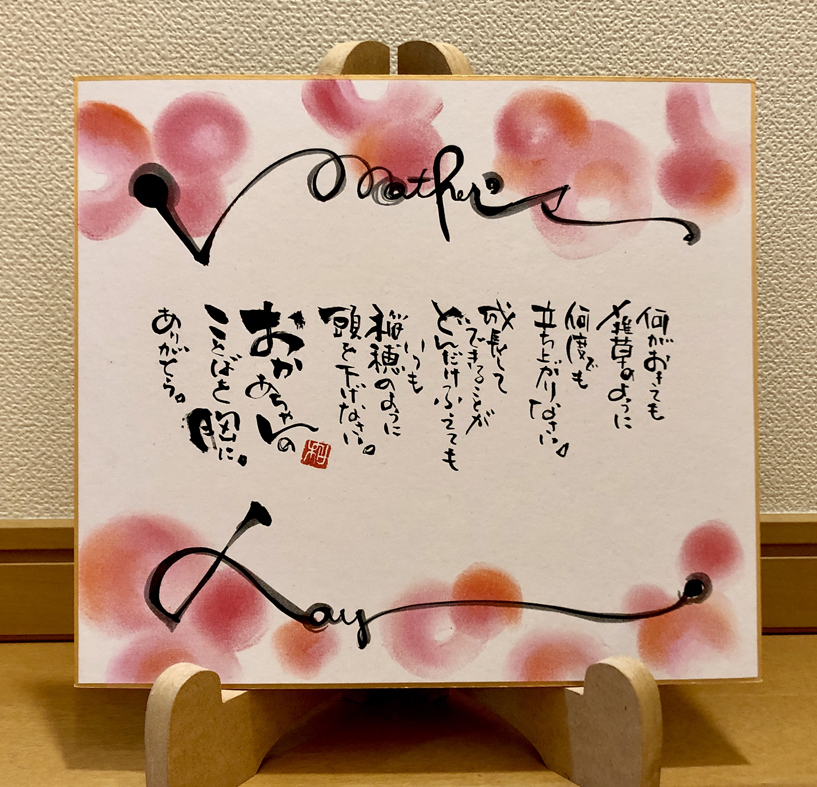 Mother's
何がおきても
雑草のように
何度でも
立ち上がりなさい。
成長して
できることが
どんだけふえても
いつも
稲穂のように
頭を下げなさい。
おかあちゃんの
ことばを胸に。
ありがとう。
Day